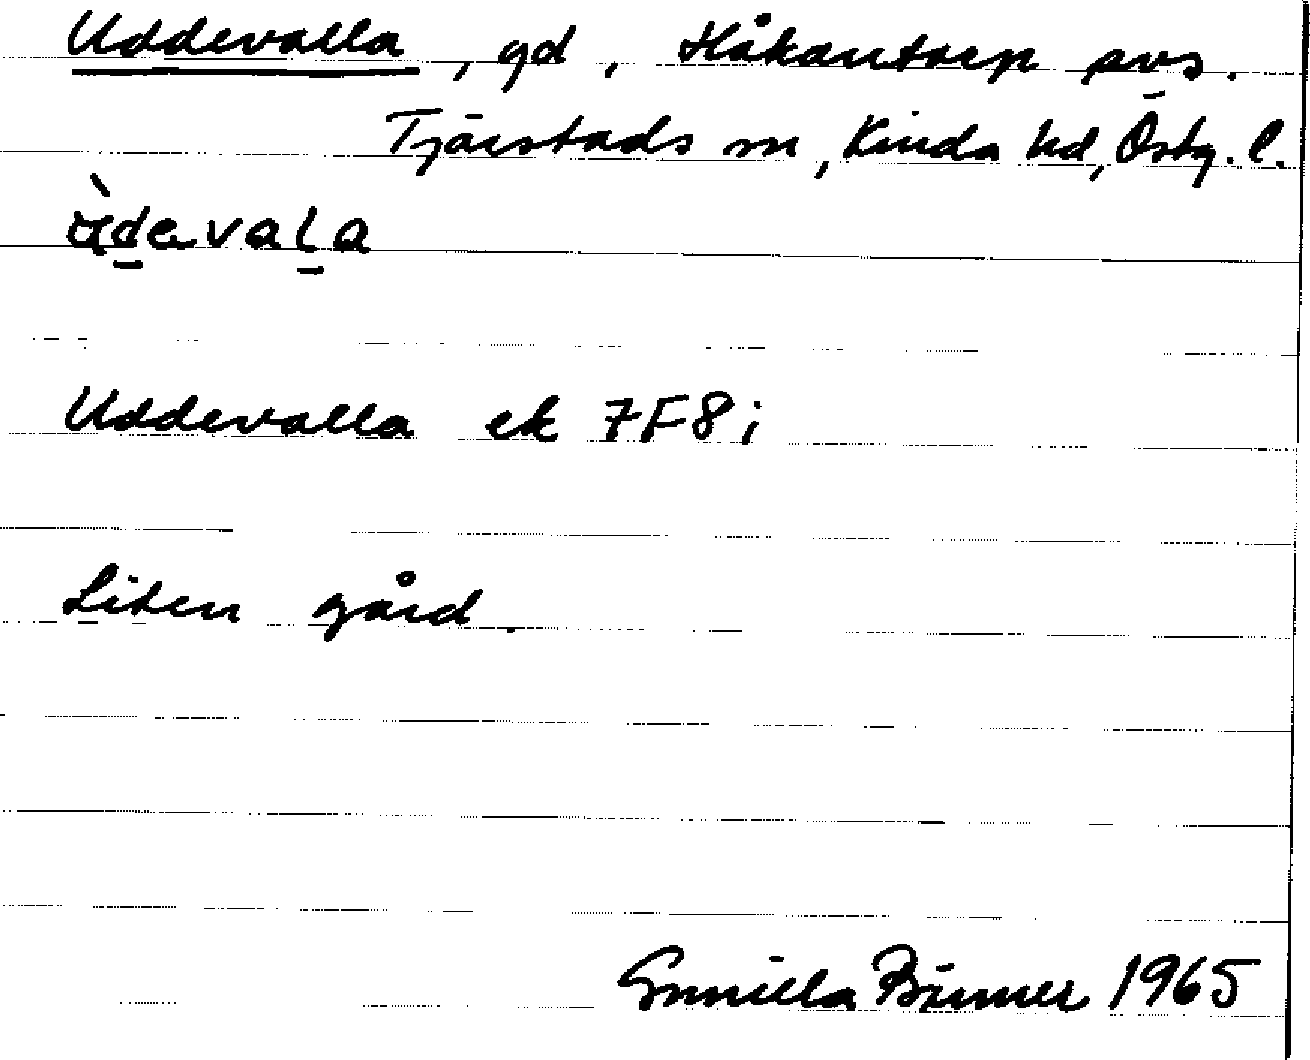 Uddevalla, gd, Håkantorp svs.
Tjärstads sn, Kinda hd, Östg. l.
Uddevalla ek 7F8i
Liten gård.
Gunilla 1965